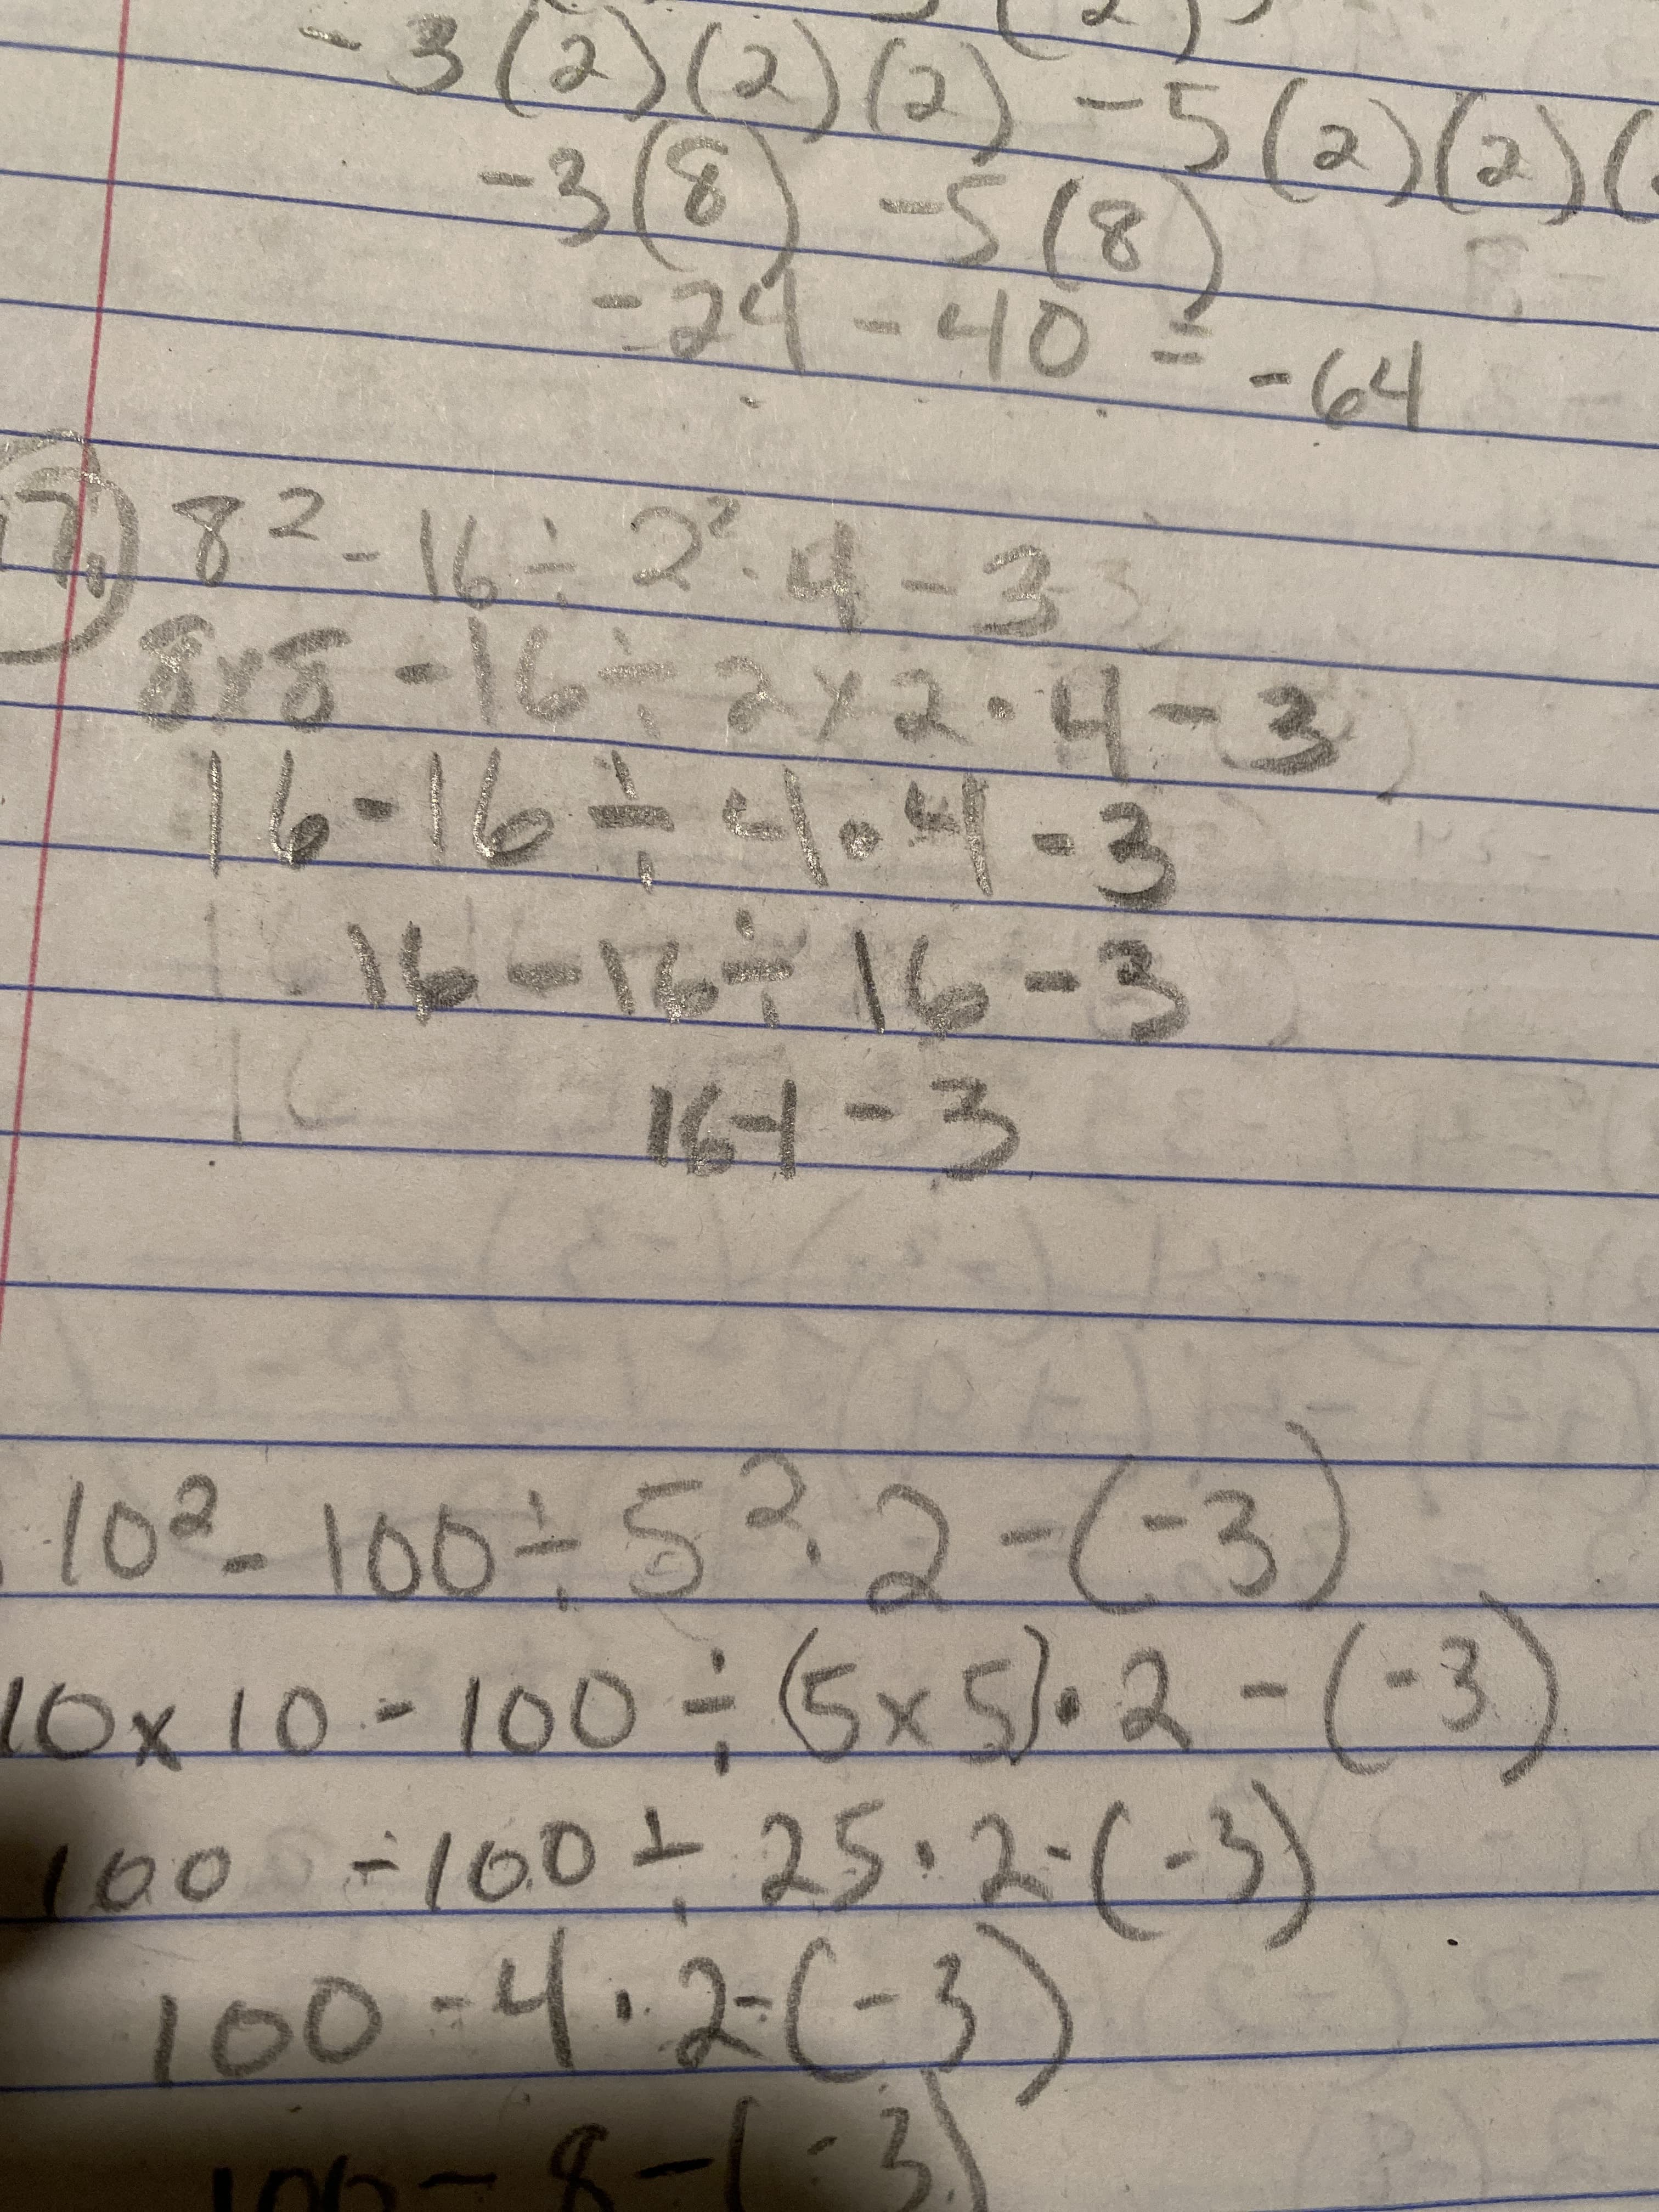 (2)
-3(2)(2)(2) -5(2)(2)(
-3(8) -5(8)
-24 -40 = -64
17. 8² - 16 ÷ 2² · 4 - 3
8x8 - 16 ÷ 2 x 2 · 4 - 3
16 - 16 ÷ 4 · 4 - 3
16 - 16 ÷ 16 - 3
16-1 - 3
10² - 100 ÷ 5² · 2 - (-3)
10 x 10 - 100 ÷ (5 x 5) · 2 - (-3)
100 - 100 ÷ 25 · 2 - (-3)
100 - 4 · 2 - (-3)
100 - 8 - (-3)